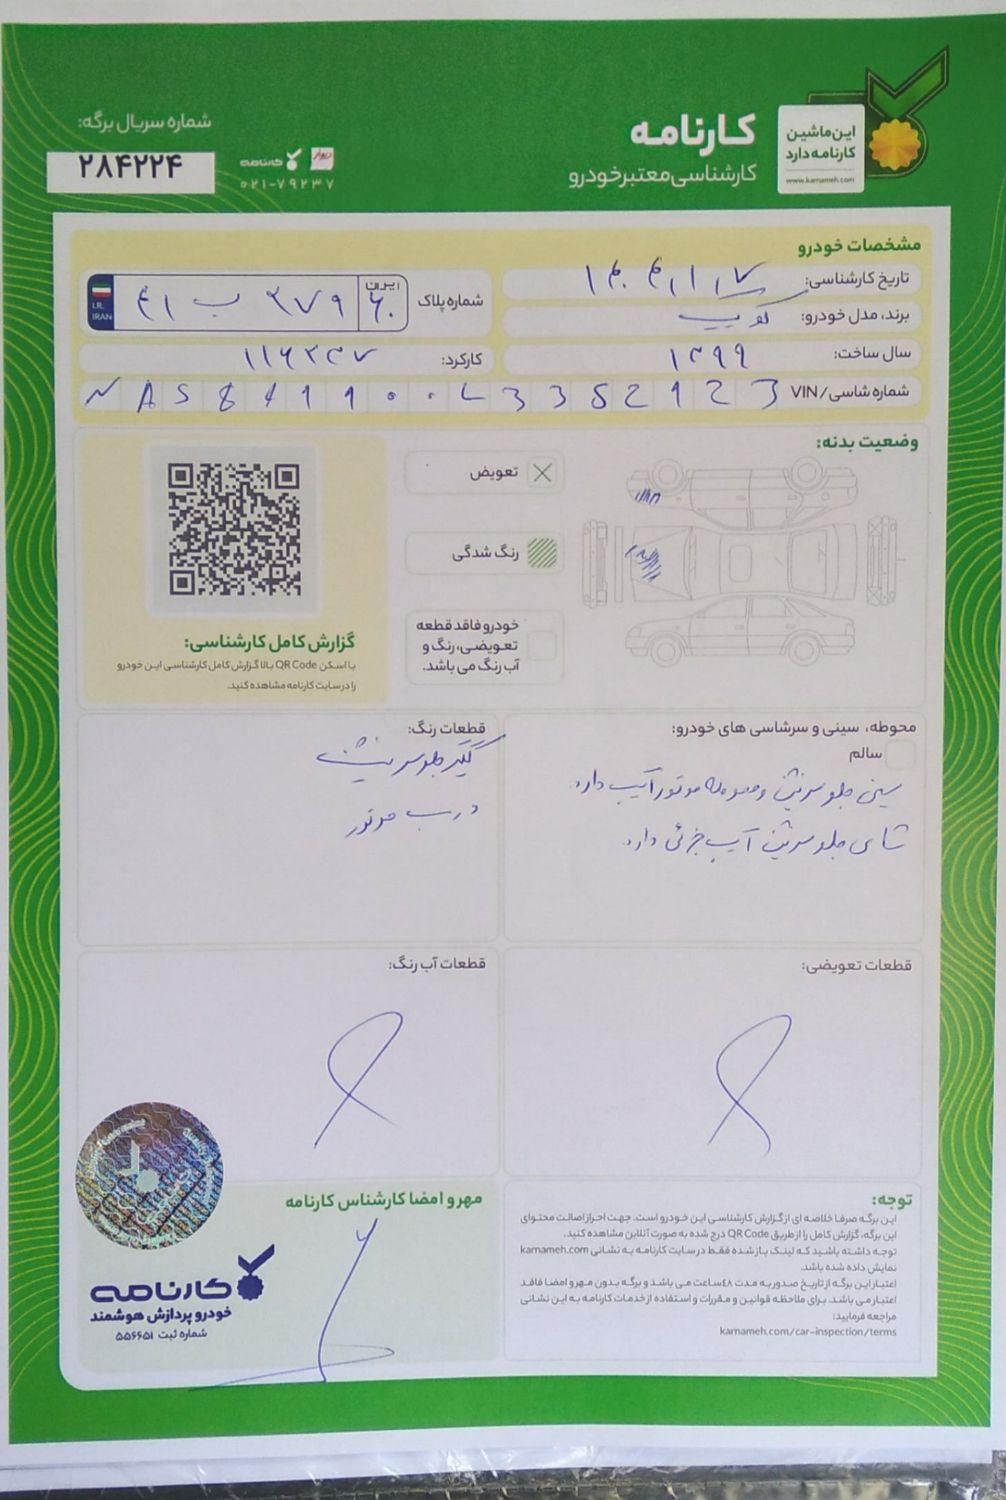 شماره سریال برگه:
۲۸۴۲۲۴
دیوار کارنامه
۰۲۱-۷۹۲۳۷
کارنامه
کارشناسی معتبر خودرو
این ماشین
کارنامه دارد
www.karnameh.com
مشخصات خودرو
تاریخ کارشناسی:
شماره پلاک
ایران
۶۰
۳۷۹ ب ۴۱
I.R.
IRAN
برند، مدل خودرو: کوییک
سال ساخت: ۱۳۹۹
کارکرد: ۱۱۶۲۳۷
شماره شاسی/VIN
وضعیت بدنه:
تعویض
رنگ شدگی
خودرو فاقد قطعه
تعویضی، رنگ و
آب رنگ می باشد.
گزارش کامل کارشناسی:
با اسکن QR Code بالا گزارش کامل کارشناسی این خودرو
را در سایت کارنامه مشاهده کنید.
محوطه، سینی و سرشاسی های خودرو:
سالم
سینی جلو سرنشین و محوطه موتور آسیب دارد.
شاسی جلو سرنشین آسیب جزئی دارد.
قطعات رنگ:
گلگیر جلو سرنشین
درب موتور
قطعات تعویضی:
قطعات آب رنگ:
توجه:
این برگه صرفا خلاصه ای از گزارش کارشناسی این خودرو است. جهت احراز اصالت محتوای
این برگه، گزارش کامل را از طریق QR Code درج شده به صورت آنلاین مشاهده کنید.
توجه داشته باشید که لینک باز شده فقط در سایت کارنامه به نشانی karnameh.com
نمایش داده شده باشد.
اعتبار این برگه از تاریخ صدور به مدت ۴۸ ساعت می باشد و برگه بدون مهر و امضا فاقد
اعتبار می باشد. برای ملاحظه قوانین و مقررات و استفاده از خدمات کارنامه به این نشانی
مراجعه فرمایید:
karnameh.com/car-inspection/terms
مهر و امضا کارشناس کارنامه
کارنامه
خودرو پردازش هوشمند
شماره ثبت ۵۵۶۶۵۱